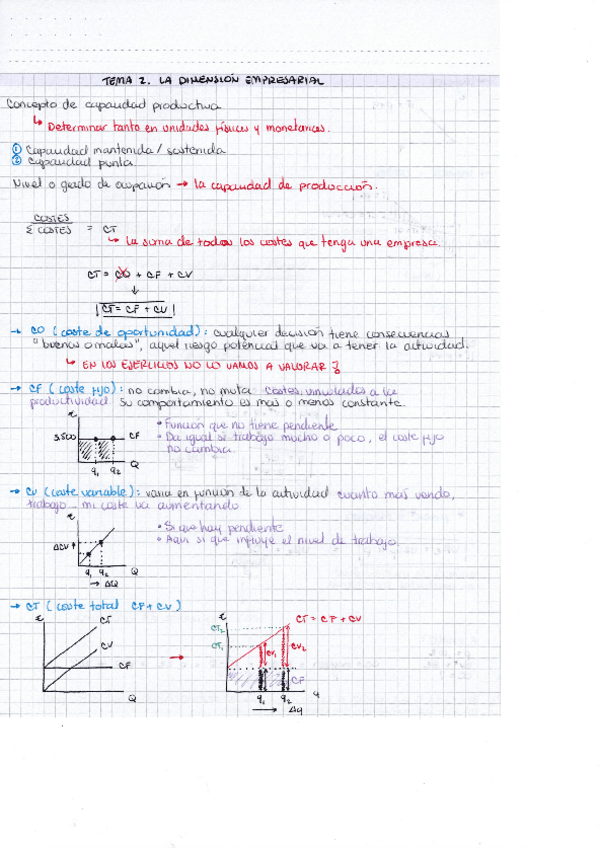 TEMA 2. LA DIMENSIÓN EMPRESARIAL
Concepto de capacidad productiva
↳ Determinar tanto en unidades físicas y monetarias.
① Capacidad mantenida / sostenida
② Capacidad punta
Nivel o grado de ocupación → la capacidad de producción.
COSTES
Σ COSTES = CT
↳ La suma de todos los costes que tenga una empresa.
CT = CO + CF + CV
↓
CT = CF + CV
→ CO (coste de oportunidad): cualquier decisión tiene consecuencias
"buenas o malas", aquel riesgo potencial que va a tener la actividad.
↳ EN LOS EJERCICIOS NO LO VAMOS A VALORAR
→ CF (coste fijo): no cambia, no muta costes vinculados a la
productividad. Su comportamiento es mas o menos constante.
€
3.500
CF
q1 q2 Q
• Funcion que no tiene pendiente
• Da igual si trabajo mucho o poco, el coste fijo
no cambia.
→ CV (coste variable): varia en funcion de la actividad cuanto mas vendo,
trabajo mi coste va aumentando
€
ΔCV ↑
q1 q2 Q
→ ΔQ
• Si que hay pendiente
• Aqui si que influye el nivel de trabajo.
→ CT (coste total CF + CV)
€
CT
CV
CF
Q
→
€
CT = CF + CV
CT2
CT1
CV1
CV2
CF
q1 q2 q
→ Δq